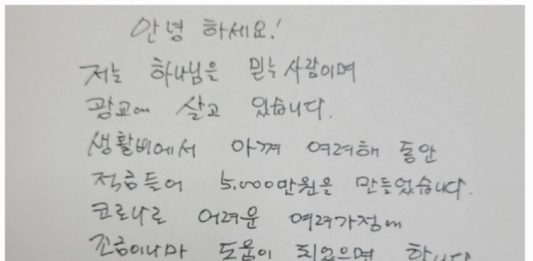 안녕 하세요!
저는 하나님은 믿는 사람이며
광교에 살고 있습니다.
생활비에서 아껴 여려해 동안
적금들어 5,000만원을 만들었습니다.
코로나로 어려운 여려가정에
조금이나마 도움이 되었으면 합니다